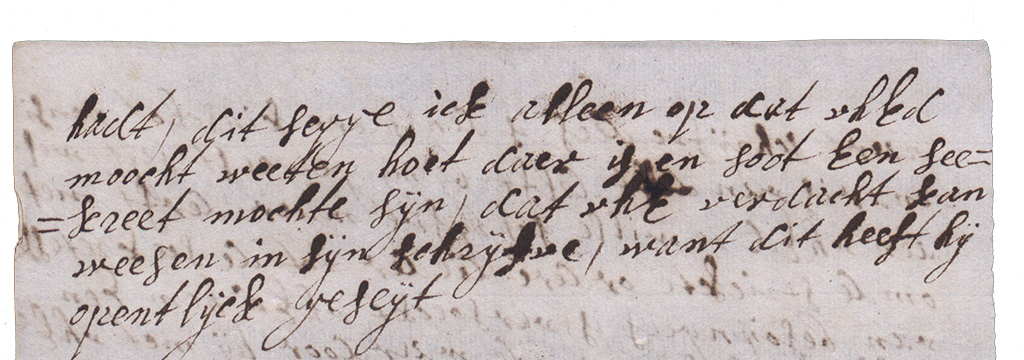 hadt, dit segge ick alleen op dat uhEd
moocht weeten hoet daer is, en soot Een see=
=kreet mochte sijn, dat uhE verdacht kan
weesen in sijn schrijfve, want dit heeft hij
opentlijck geseijt